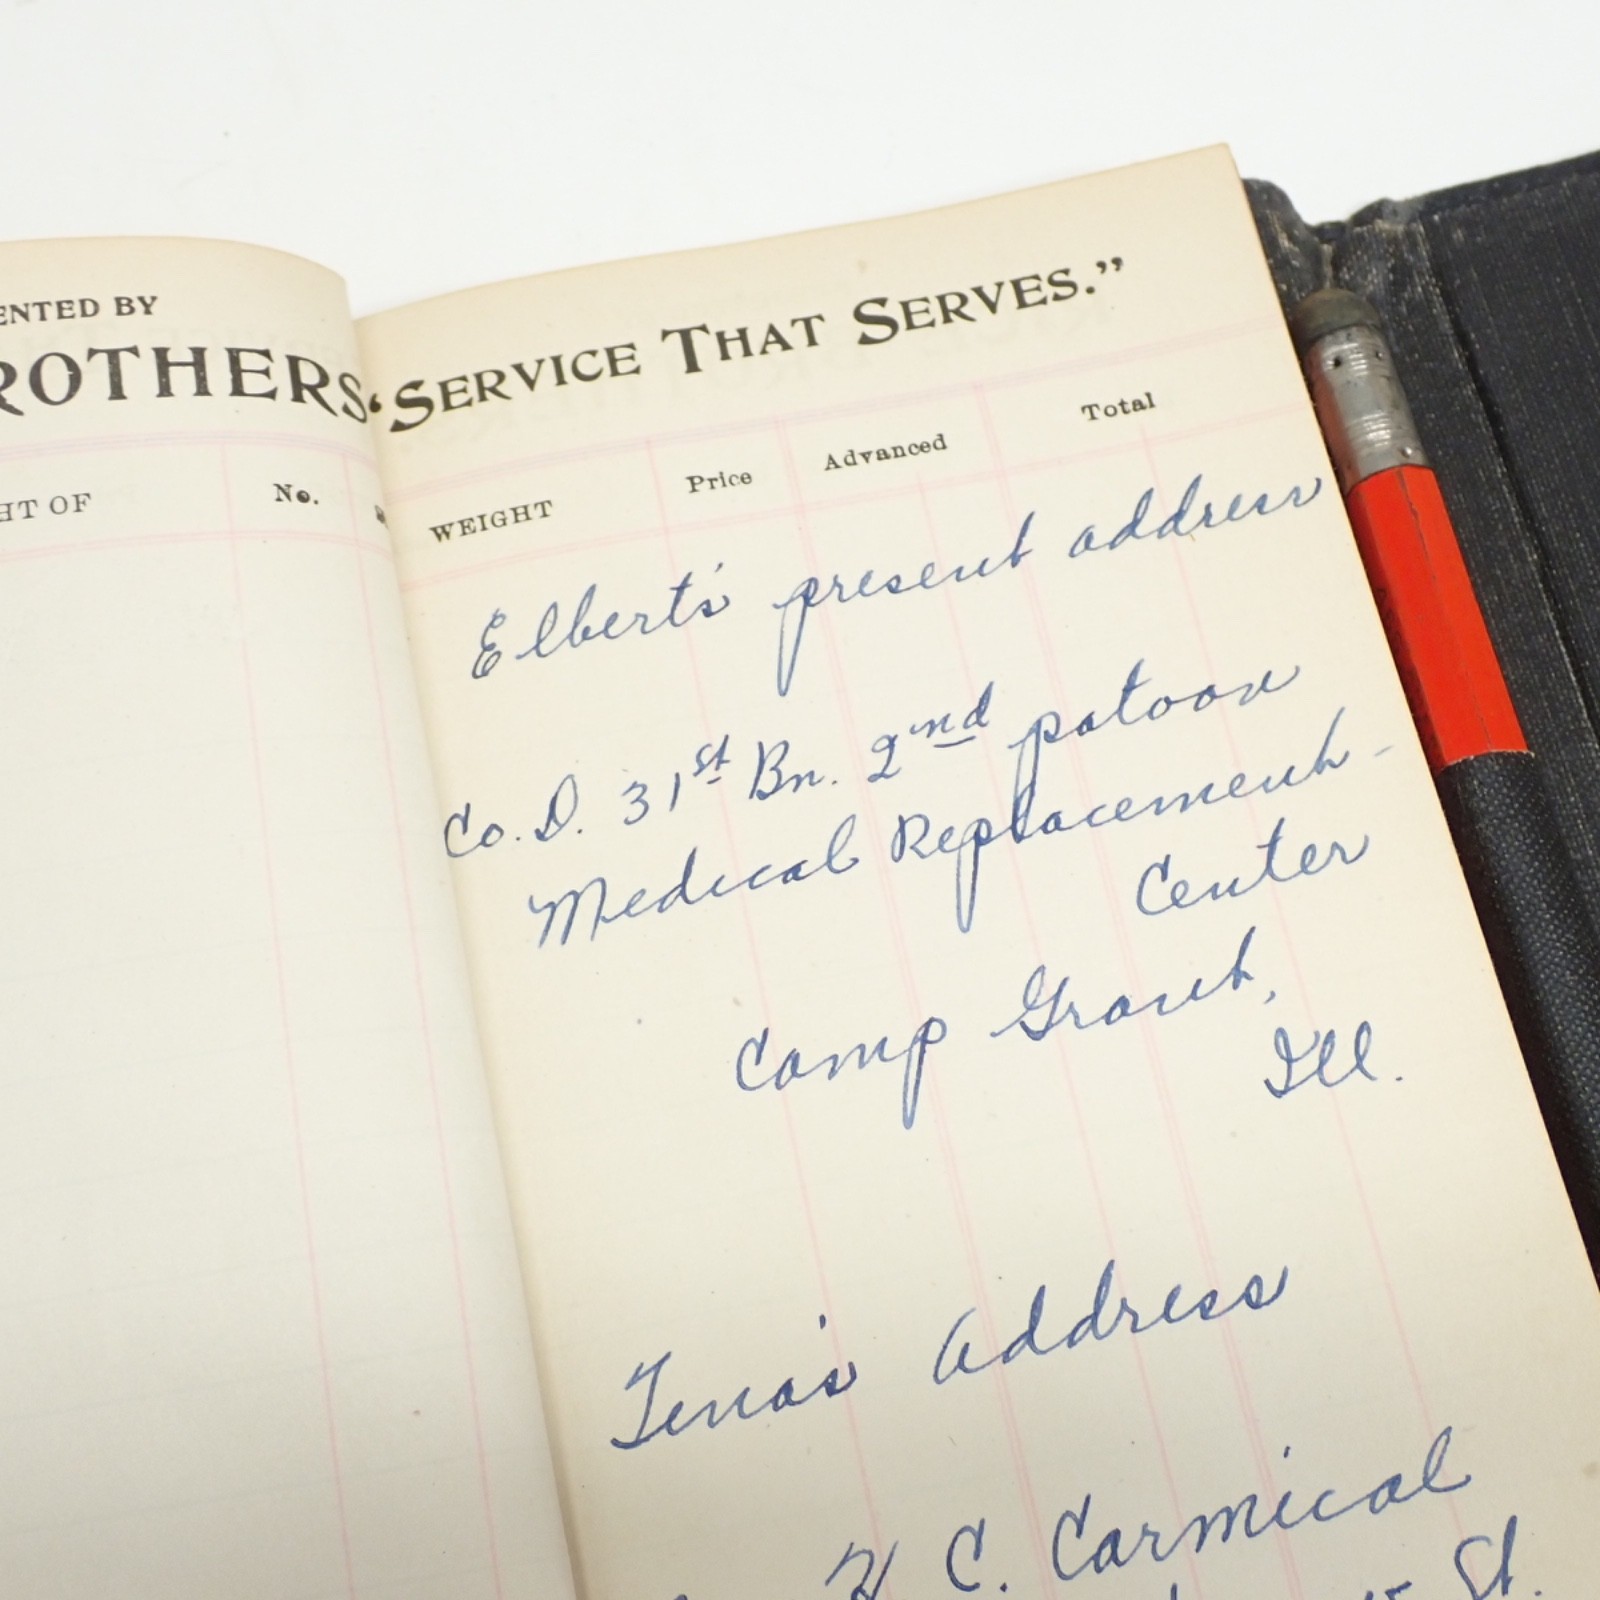 ENTED BY
ROTHERS
HT OF No.
"SERVICE THAT SERVES."
WEIGHT Price Advanced Total
Elbert's present address
Co. D. 31st Bn. 2nd patoon
Medical Replacement-
Center
Camp Grant,
Ill.
Tena's Address
H C. Carmical
St.